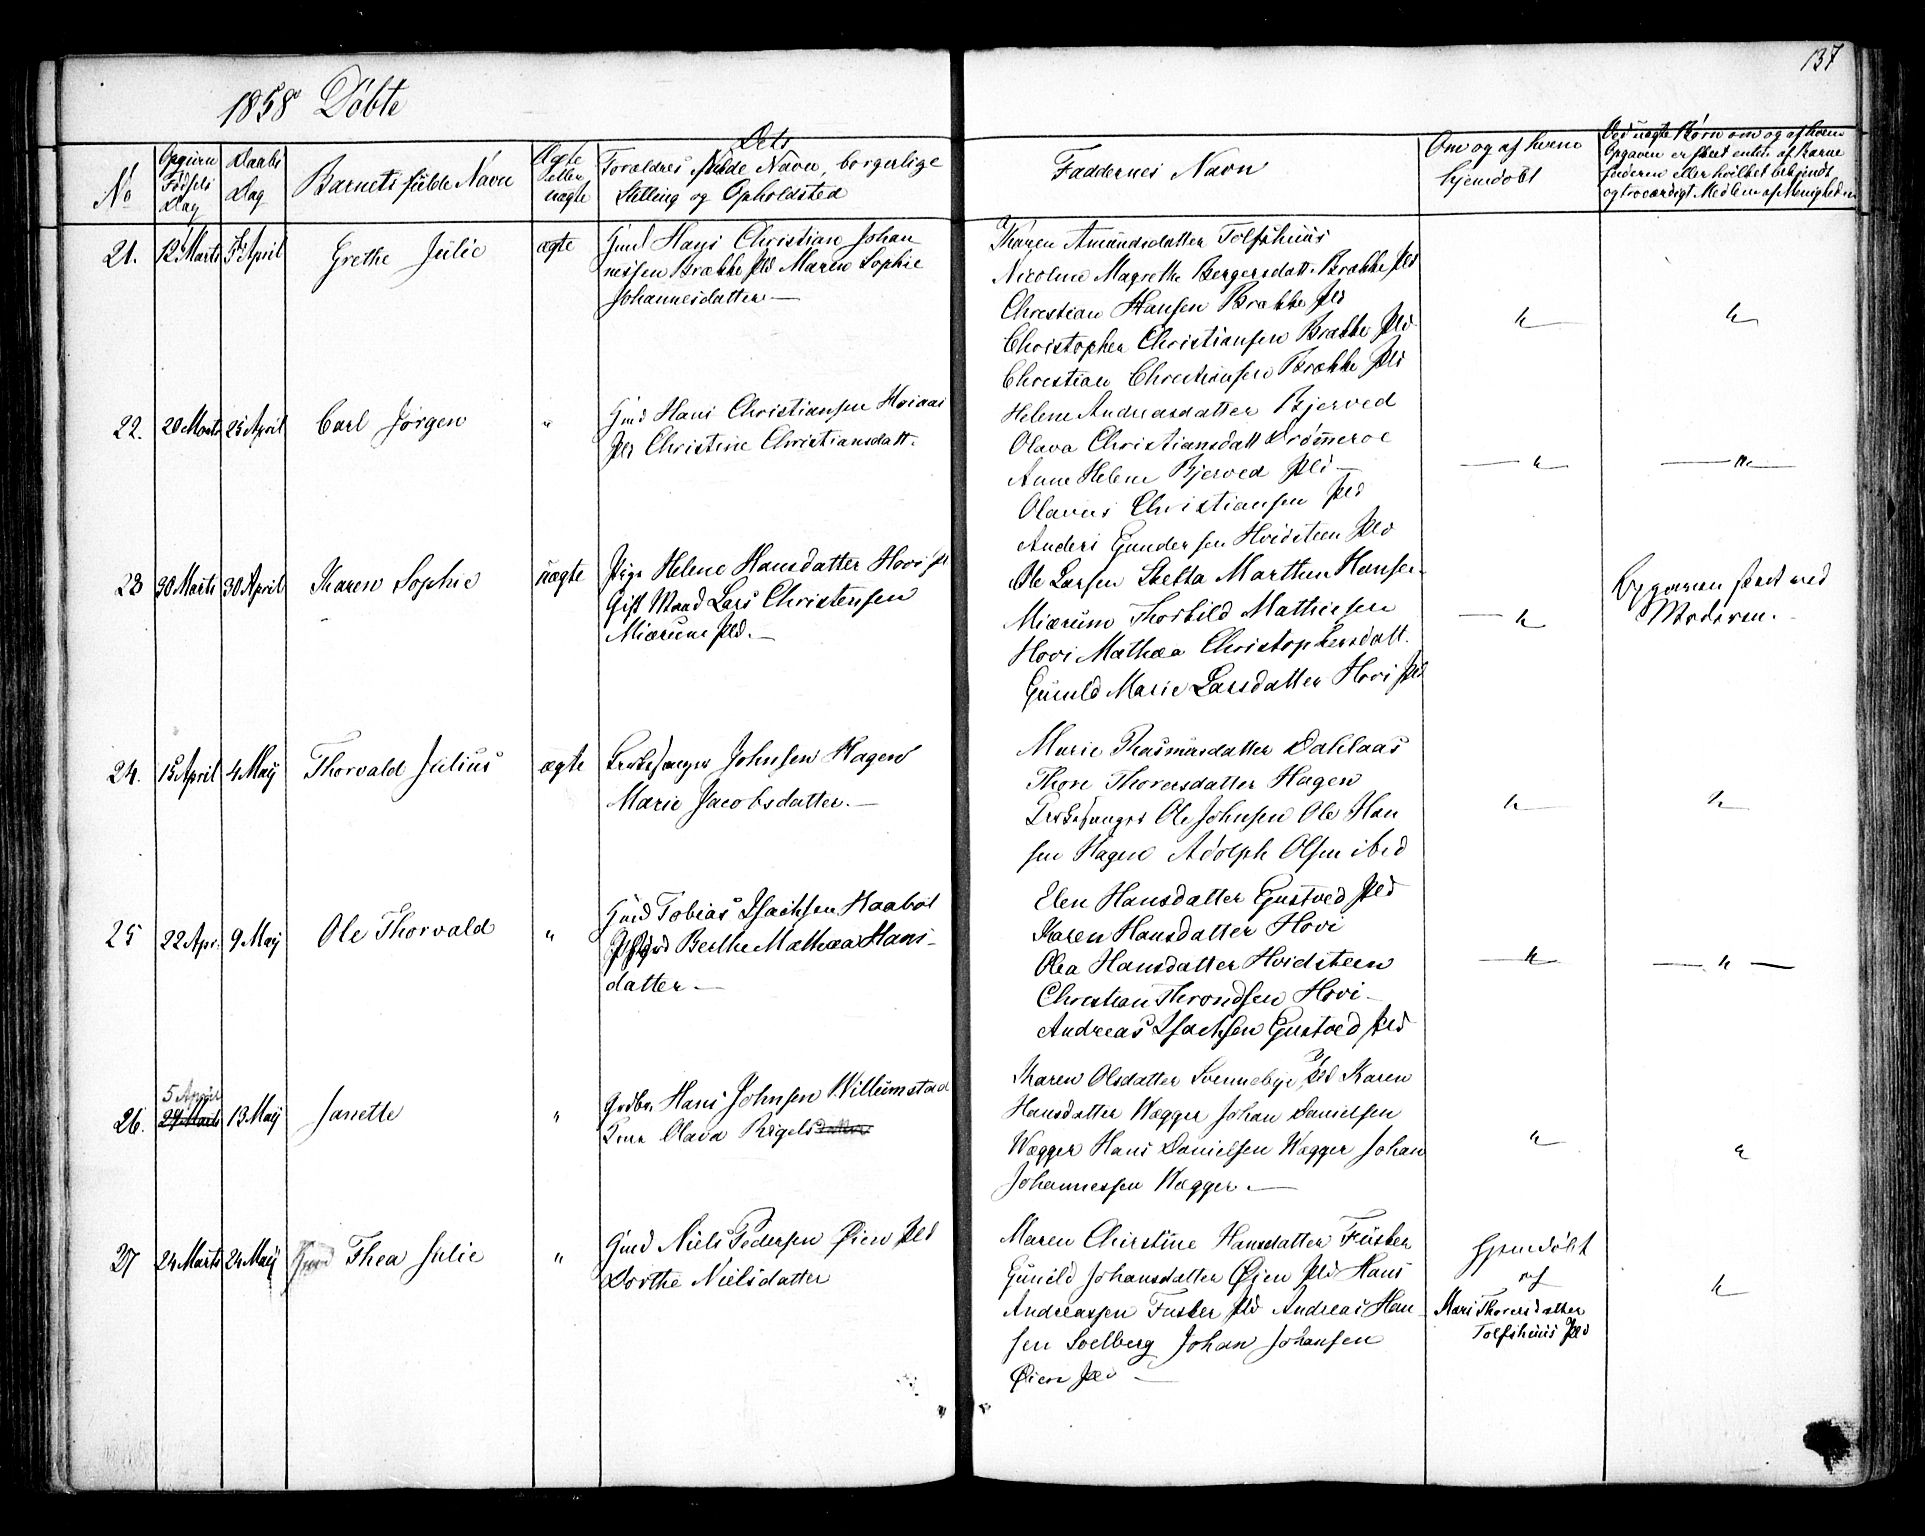 137
1858 Döbte
No
Opgiven Födsels Dag
Daabs Dag
Barnets fulde Navn
Ægte eller uægte
Dets Foraldres fulde Navn, borgerlige
Stilling og Opholdsted
Faddernes Navn
Om og af hvem
hjemdöbt
Ved uægte Börn om og af hvem
Opgaven er skeet enten af Barne
faderen eller hvilket bekjendt
og troværdigt Medlem af Menigheden
21. 12 Marts 5 April Grethe Julie ægte
Gmd Hans Christian Johan
nessen Brække Pld Maren Sophie
Johannesdatter —
Karen Amundsdatter Tolfshuus
Nicoline Magrethe Bergersdatt. Brække Pld
Christian Hansen Brække Pld
Christopher Christiansen Brække Pld
Christian Christiansen Brække Pld
22. 20 Marts 25 April Carl Jörgen "
Gmd Hans Christiansen Hviaas
Pld Christine Christiansdatt.
Helene Andreasdatter Bjerved
Olava Christiansdatt Drömeroe
Anne Helene Bjerved Pld —
Olavus Christiansen Pld
Anders Gundersen Hvidsteen Pld
23 30 Marts 30 April Karen Sophie uægte
Pige Helene Hansdatter Hovi Pl
Gift Mand Lars Christensen
Miærum Pld. —
Ole Larsen Martha Hansen
Miærum Thorbild Mathiesen
Hovi Mathea Christophersdatt.
Gunild Marie Larsdatter Hovi Pld
Opgaven skeet ved
Moderen.
24. 15 April 4 Maij Thorvald Julius ægte
Johnsen Hagen
Marie Jacobsdatter. —
Marie Rasmusdatter Dahlaas
Thore Thorersdatter Hagen
Ole Johnsen Ole Han
sen Hagen Adolph Olsen ibid
25 22 Apr. 9 Maij Ole Thorvald "
Gmd Tobias Isachsen Haaböl
Berthe Mathea Hans-
datter —
Elen Hansdatter Gustved Pld
Karen Hansdatter Hovi
Olea Hansdatter Hvidsteen
Christian Throndsen Hovi —
Andreas Isachsen Gustved Pld
5 April
26. 27 Marts 13 Maij Janette "
Grdbr. Hans Johnsen Willumstad
Olava Rigelsdatter
Karen Olsdatter Svennebye Pld Karen
Hansdatter Wægger Johan Danielsen
Wægger Hans Danielsen Wægger Johan
Johannessen Wægger. —
27 24 Marts 24 Maij Thea Julie "
Gmd Niels Pedersen Øien Pld
Dorthe Nielsdatter
Maren Christine Hansdatter Füsker
Gunild Johansdatter Øjen Pld Hans
Andreassen Fusker Pld Andreas Han
sen Soelberg Johan Johansen
Øien Pld —
Hjemdöbt
af
Mari Thorersdatter
Tolfshuus Pld